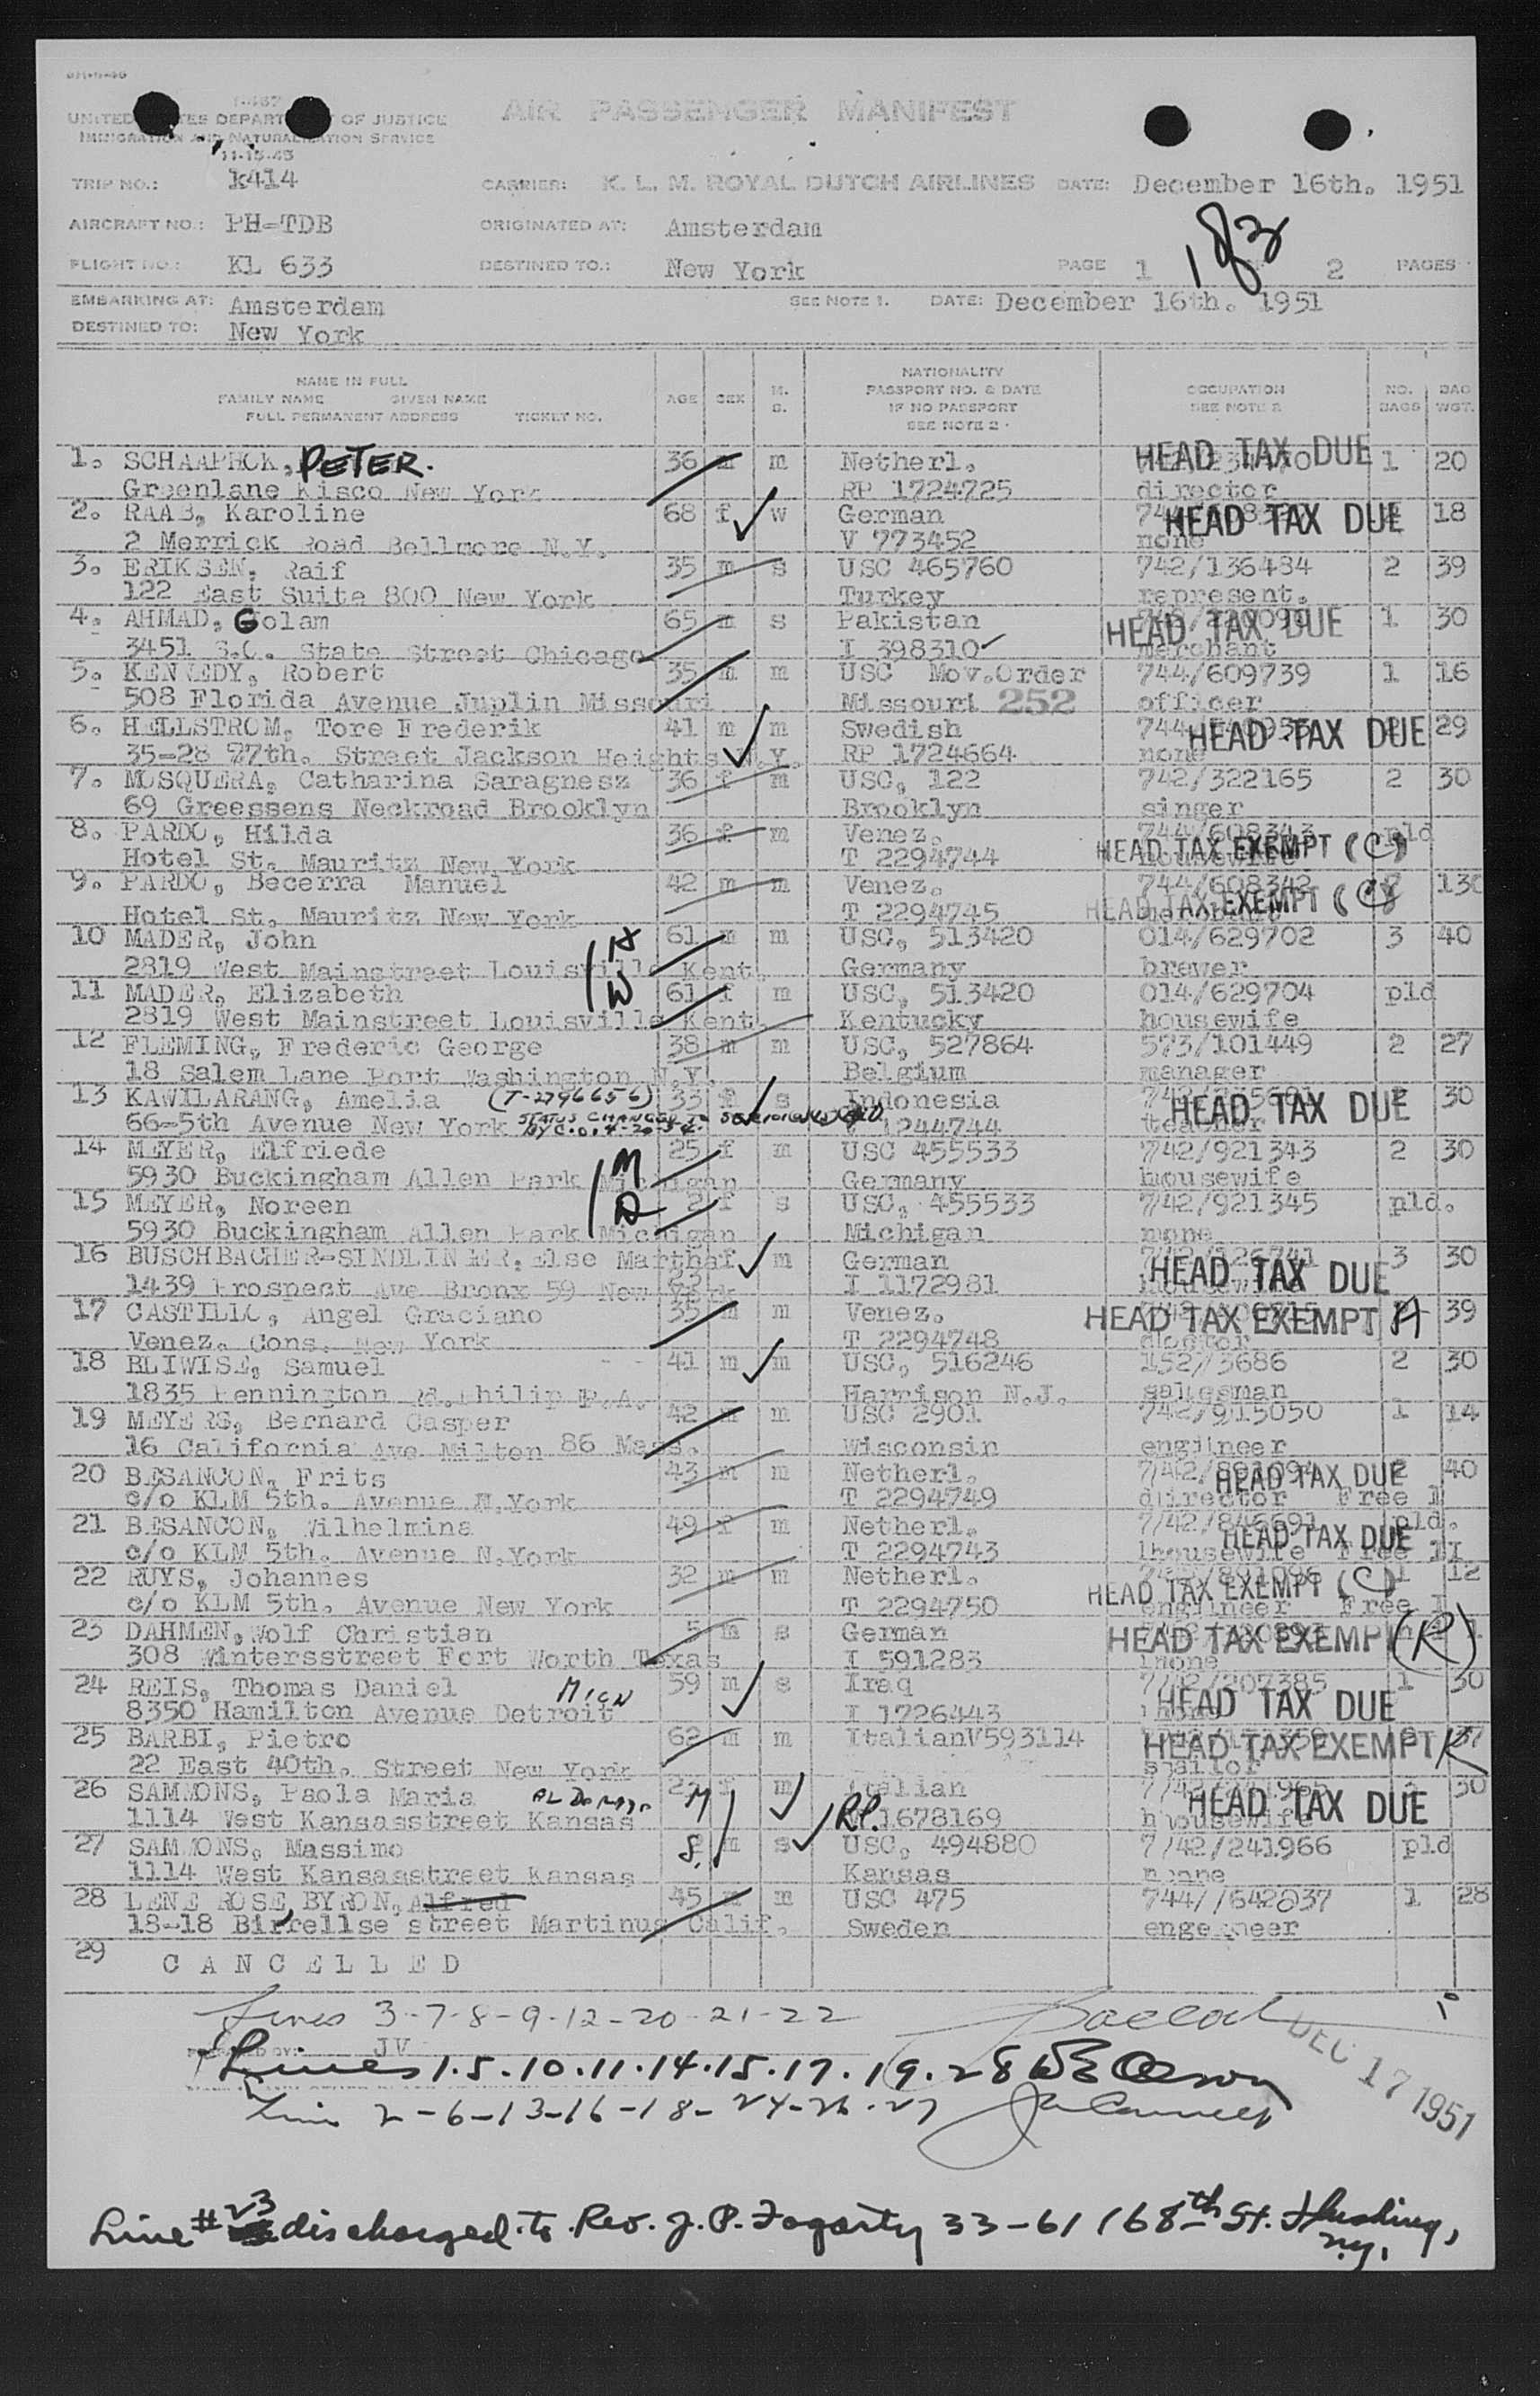 I-467
UNITED STATES DEPARTMENT OF JUSTICE
IMMIGRATION AND NATURALIZATION SERVICE
11-15-45
AIR PASSENGER MANIFEST
TRIP NO.: k414 CARRIER: K. L. M. ROYAL DUTCH AIRLINES DATE: December 16th. 1951
AIRCRAFT NO.: PH-TDB ORIGINATED AT: Amsterdam
183
FLIGHT NO.: KL 633 DESTINED TO.: New York PAGE 1 2 PAGES
EMBARKING AT: Amsterdam SEE NOTE 1. DATE: December 16th. 1951
DESTINED TO: New York
NAME IN FULL
FAMILY NAME GIVEN NAME
FULL PERMANENT ADDRESS TICKET NO.
AGE SEX M. S.
NATIONALITY
PASSPORT NO. & DATE
IF NO PASSPORT
SEE NOTE 2
OCCUPATION
SEE NOTE 2
NO. BAGS
BAG WGT.
1. SCHAAPHOK, PETER. 36 m m Netherl. HEAD TAX DUE 1 20
Greenlane Kisco New York RP 1724725 director
2. RAAB, Karoline 68 f w German HEAD TAX DUE 18
2 Merrick Road Bellmore N.Y. V 773452 none
3. ERIKSEN, Raif 35 m s USC 465760 742/136484 2 39
122 East Suite 800 New York Turkey represent.
4. AHMAD, Golam 65 m s Pakistan HEAD TAX DUE 1 30
3451 S.C. State Street Chicago I 398310 merchant
5. KENNEDY, Robert 35 m m USC Mov.Order 744/609739 1 16
508 Florida Avenue Juplin Missouri Missouri 252 officer
6. HELLSTROM, Tore Frederik 41 m m Swedish HEAD TAX DUE 29
35-28 77th. Street Jackson Heights N.Y. RP 1724664 none
7. MOSQUERA, Catharina Saragnesz 36 f m USC, 122 742/322165 2 30
69 Greessens Neckroad Brooklyn Brooklyn singer
8. PARDO, Hilda 36 f m Venez. 744/608343 pld
Hotel St. Mauritz New York T 2294744 HEAD TAX EXEMPT (C)
9. PARDO, Becerra Manuel 42 m m Venez. 744/608342 130
Hotel St. Mauritz New York T 2294745 HEAD TAX EXEMPT (C)
10 MADER, John H 61 m m USC, 513420 014/629702 3 40
2819 West Mainstreet Louisville Kent. Germany brewer
11 MADER, Elizabeth W 61 f m USC, 513420 014/629704 pld
2819 West Mainstreet Louisville Kent Kentucky housewife
12 FLEMING, Frederic George 38 m m USC, 527864 573/101449 2 27
18 Salem Lane Port Washington N.Y. Belgium manager
13 KAWILARANG, Amelia (T-2796656) 33 f s Indonesia HEAD TAX DUE 30
66-5th Avenue New York STATUS CHANGED 1244744 teacher
14 MEYER, Elfriede M 25 f m USC 455533 742/921343 2 30
5930 Buckingham Allen Park Michigan Germany housewife
15 MEYER, Noreen D 2 f s USC, 455533 742/921345 pld.
5930 Buckingham Allen Park Michigan Michigan none
16 BUSCHBACHER-SINDLINGER, Else Martha f m German HEAD TAX DUE 3 30
1439 Prospect Ave Bronx 59 New York 23 I 1172981
17 CASTILLO, Angel Graciano 35 m m Venez. HEAD TAX EXEMPT A 39
Venez. Cons. New York T 2294748 doctor
18 BLIWISE, Samuel 41 m m USC, 516246 152//3686 2 30
1835 Pennington Rd. Philip P.A. Harrison N.J. salesman
19 MEYERS, Bernard Casper 42 m m USC 2901 742/915050 1 14
16 California Ave Milton 86 Mass. Wisconsin engineer
20 BESANCON, Frits 43 m m Netherl. HEAD TAX DUE 2 40
c/o KLM 5th. Avenue N.York T 2294749 director Free 1
21 BESANCON, Wilhelmina 49 f m Netherl. 742/846691 pld.
c/o KLM 5th. Avenue N.York T 2294743 housewife Free II HEAD TAX DUE
22 RUYS, Johannes 32 m m Netherl. HEAD TAX EXEMPT (C) 1 12
c/o KLM 5th. Avenue New York T 2294750 engineer Free 1
23 DAHMEN, Wolf Christian 5 m s German HEAD TAX EXEMPT (R)
308 Wintersstreet Fort Worth Texas I 591283 none
24 REIS, Thomas Daniel 59 m s Iraq 742/207385 1 30
8350 Hamilton Avenue Detroit MICH I 1726443 HEAD TAX DUE
25 BARBI, Pietro 62 m m Italian V593114 HEAD TAX EXEMPT R 37
22 East 40th. Street New York
26 SAMMONS, Paola Maria M f m Italian HEAD TAX DUE 30
1114 West Kansasstreet Kansas RP. 1678169 housewife
27 SAMMONS, Massimo S. m s USC, 494880 742/241966 pld
1114 West Kansasstreet Kansas Kansas none
28 LENE ROSE, BYRON, Alfred 45 m m USC 475 744//642037 1 28
18-18 Birrellse street Martinus Calif. Sweden engeneer
29 CANCELLED
Lines 3-7-8-9-12-20-21-22
PREPARED BY: JV
Lines 1.5.10.11.14.15.17.19.28
DEC 17 1951
Line 2-6-13-16-18-24-26-27
Line # 23 discharged to Rev. J. P. Fogarty 33-61 168th St. Flushing, N.Y.